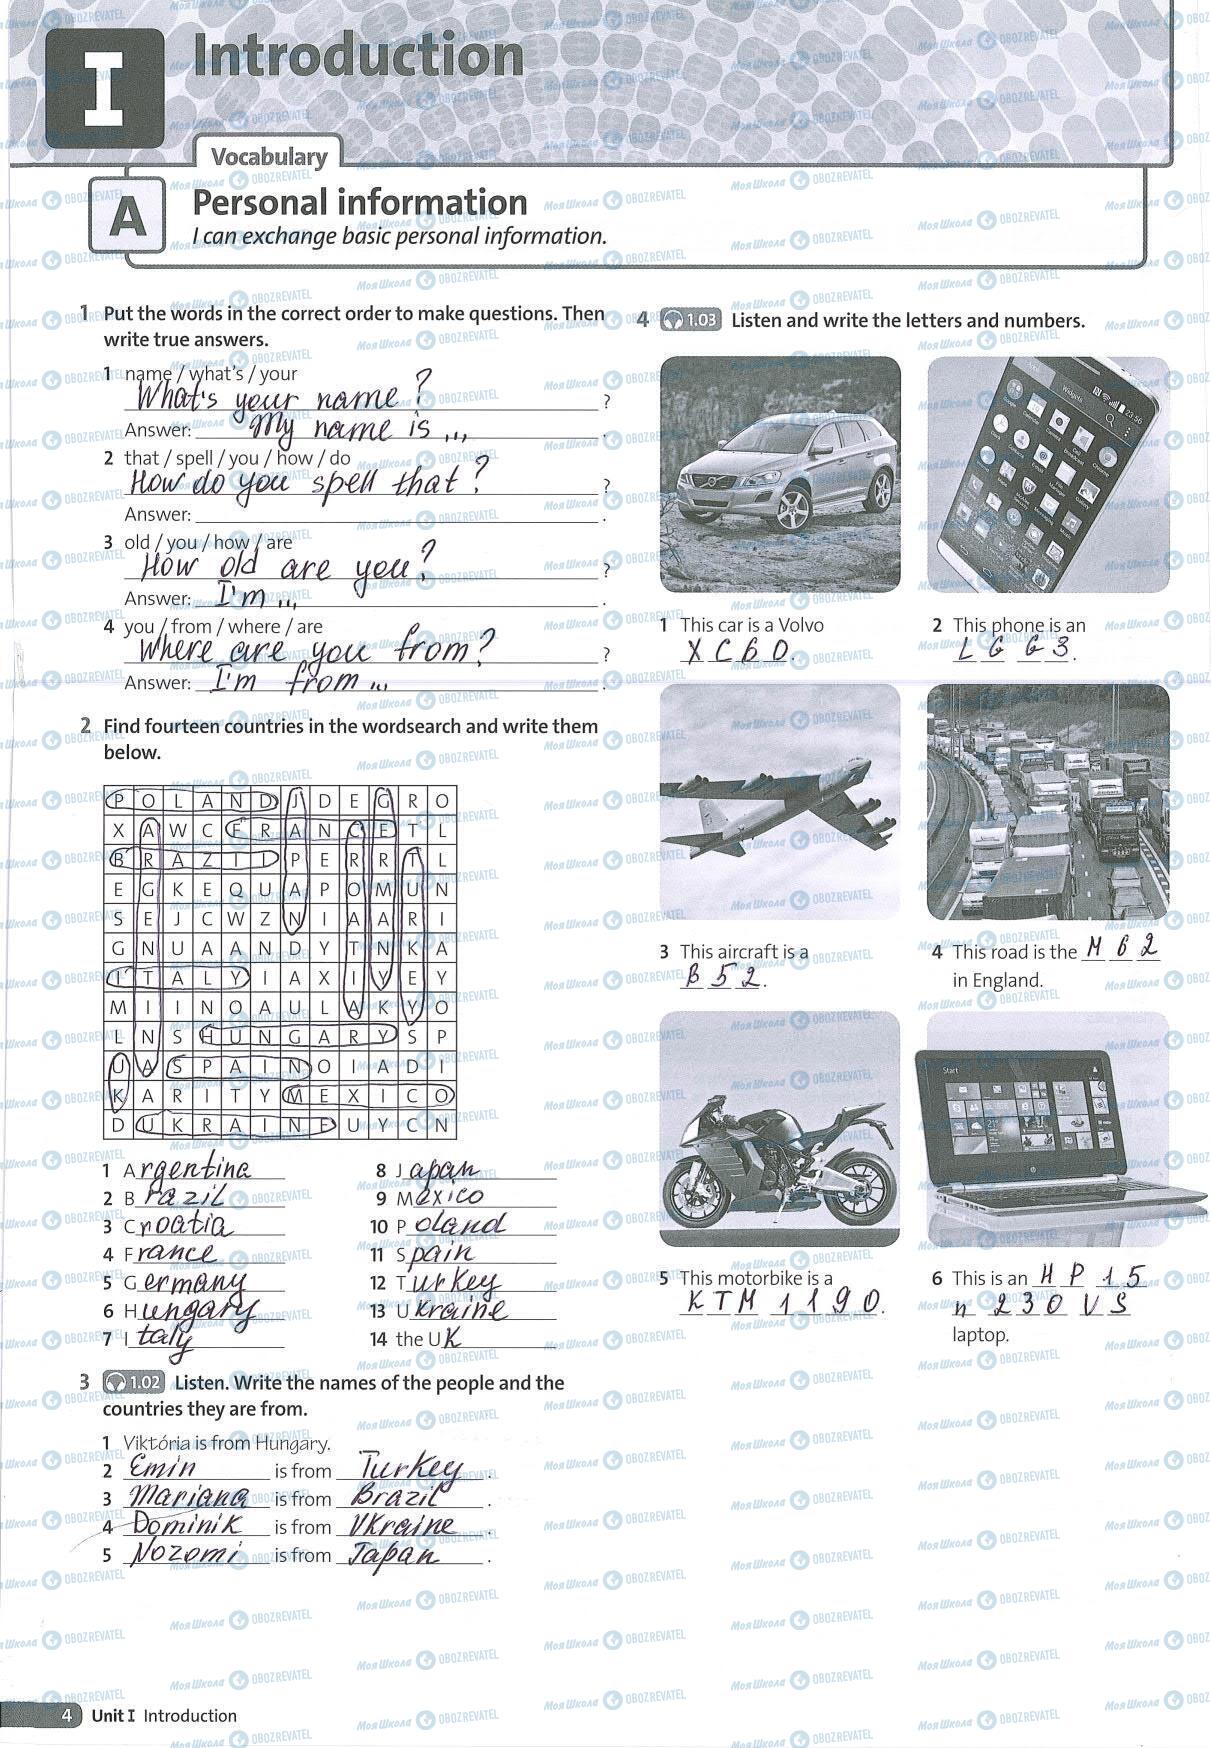 I
Introduction
Vocabulary
A
Personal information
I can exchange basic personal information.
1 Put the words in the correct order to make questions. Then
write true answers.
1 name / what's / your
What's your name? ?
Answer: My name is ... .
2 that / spell / you / how / do
How do you spell that? ?
Answer: .
3 old / you / how / are
How old are you? ?
Answer: I'm ... .
4 you / from / where / are
Where are you from? ?
Answer: I'm from ... .
2 Find fourteen countries in the wordsearch and write them
below.
P O L A N D J D E G R O
X A W C F R A N C E T L
B R A Z I L P E R R T L
E G K E Q U A P O M U N
S E J C W Z N I A A R I
G N U A A N D Y T N K A
I T A L Y I A X I Y E Y
M I I N O A U L A K Y O
L N S H U N G A R Y S P
U A S P A I N O I A D I
K A R I T Y M E X I C O
D U K R A I N E U Y C N
1 Argentina
2 Brazil
3 Croatia
4 France
5 Germany
6 Hungary
7 Italy
8 Japan
9 Mexico
10 Poland
11 Spain
12 Turkey
13 Ukraine
14 the UK
3 1.02 Listen. Write the names of the people and the
countries they are from.
1 Viktória is from Hungary.
2 Emin is from Turkey.
3 Mariana is from Brazil.
4 Dominik is from Ukraine.
5 Nozomi is from Japan.
4 1.03 Listen and write the letters and numbers.
1 This car is a Volvo
X C 6 0.
2 This phone is an
L G G 3.
3 This aircraft is a
B 5 2.
4 This road is the M 6 2
in England.
Start
5 This motorbike is a
K T M 1 1 9 0.
6 This is an H P 1 5
n 2 3 0 V S
laptop.
4 Unit I Introduction
Моя Школа OBOZREVATEL